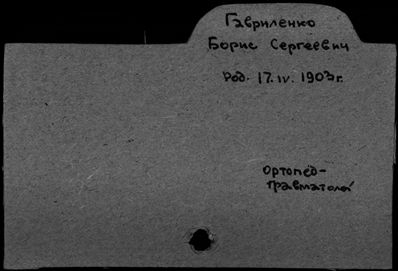 Гавриленко
Борис Сергеевич
Род. 17.IV. 1903г.
Ортопед-
травматолог